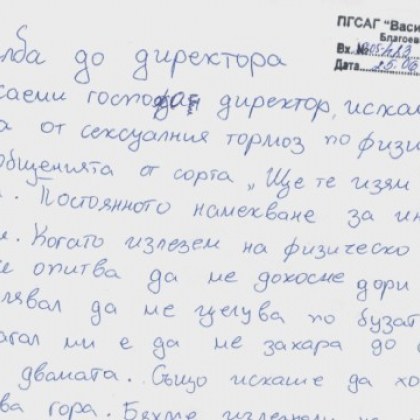 ПГСАГ "Васи
Благоев
Вх. №
Дата 25.06
лба до директора
жаеми господин директор, искам
а от сексуалния тормоз по физи
общенията от сорта „Ще те изям
. Постоянното намекване за ин
и. Когато излезем на физическо
се опитва да ме докосне дори
лявал да ме целува по бузат
агал ми е да ме закара до
двамата. Също искаше да хо
ва гора. Бяхме излезнали на